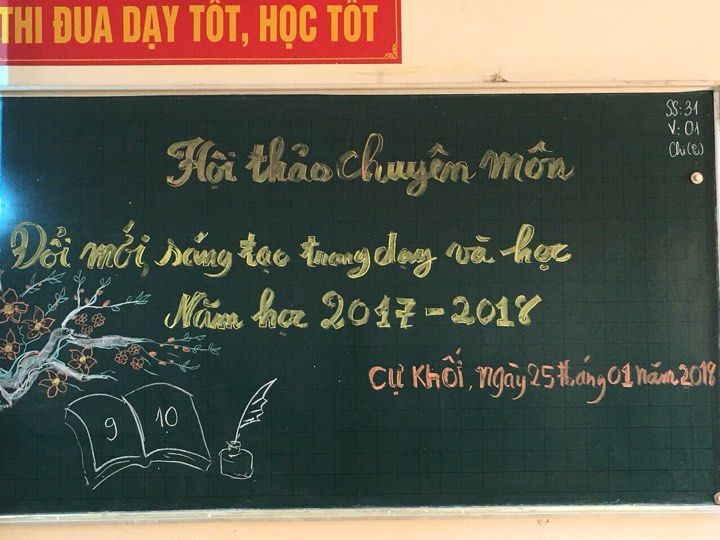 THI ĐUA DẠY TỐT, HỌC TỐT
SS: 31
V: 01
Hội thảo chuyên môn
Đổi mới, sáng tạo trong dạy và học
Năm học 2017 - 2018
Cự Khối, ngày 25 tháng 01 năm 2018
9 10